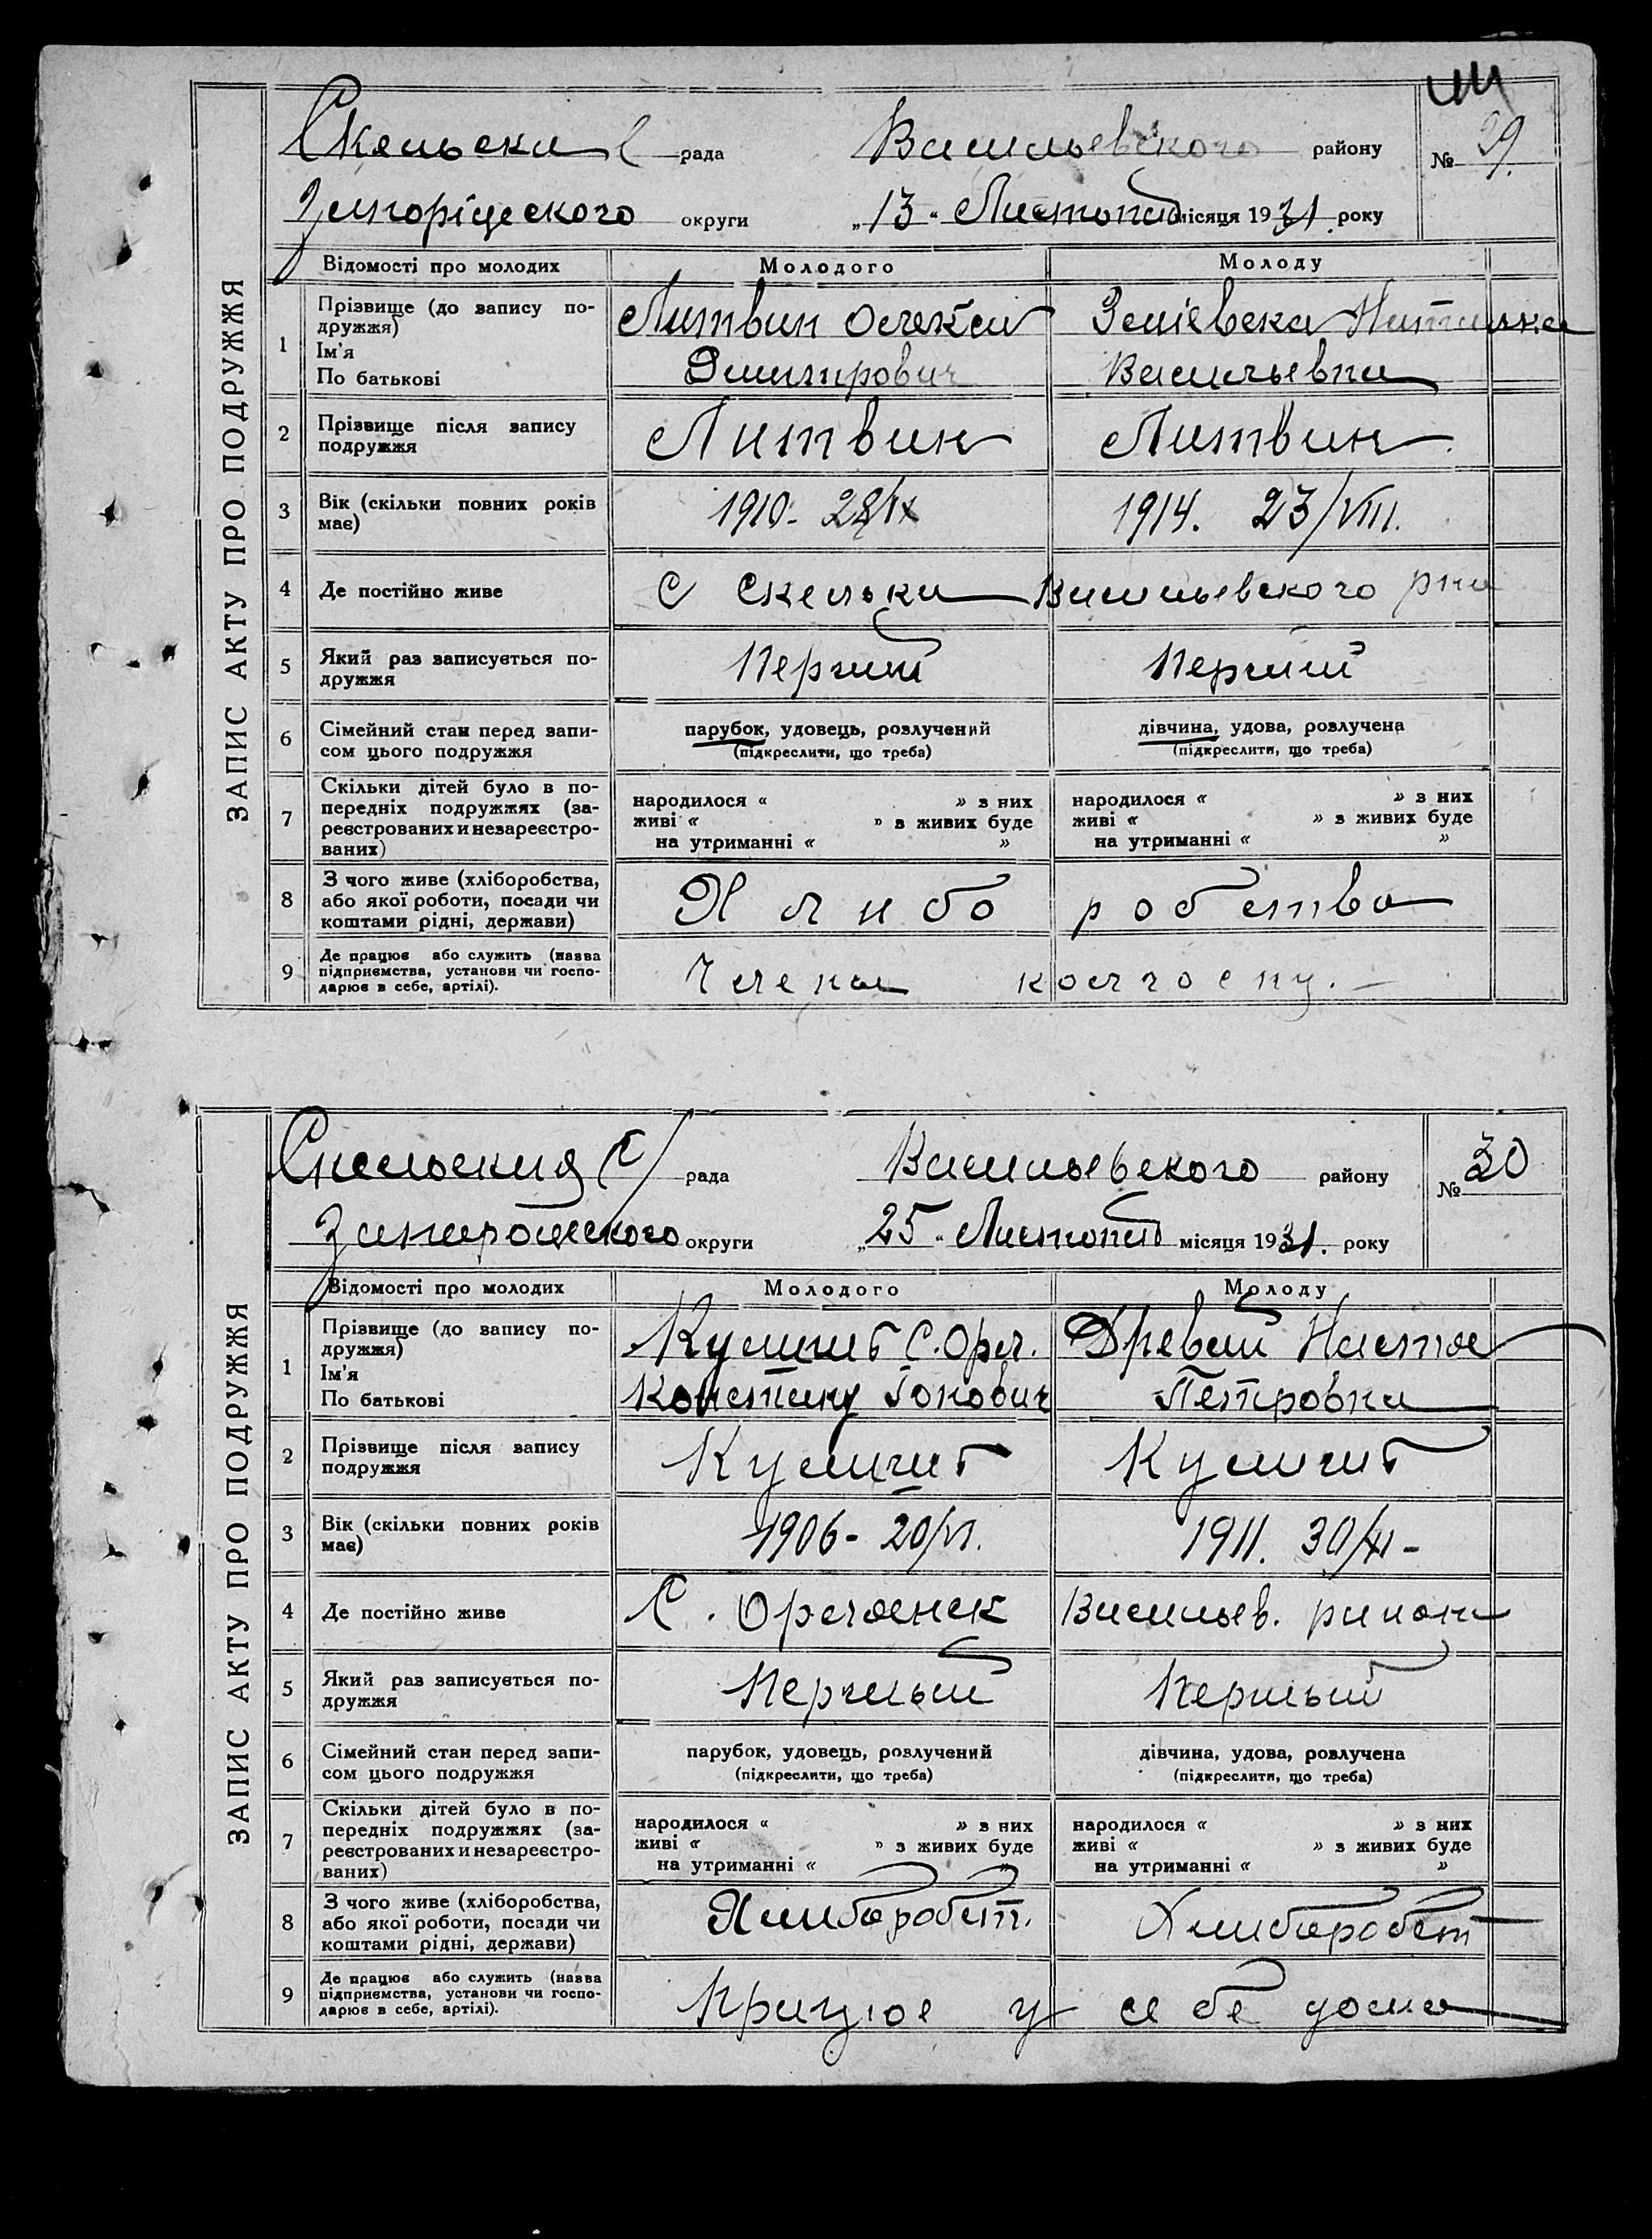 Скельска С рада Васильевского району № 29.
Запоріцеского округи „13“ Листопад місяця 1931. року
ЗАПИС АКТУ ПРО ПОДРУЖЖЯ
Відомості про молодих Молодого Молоду
1 Прізвище (до запису подружжя)
Ім'я
По батькові
Литвин Олексай
Дмитрович
Наталка
Васильевна
2 Прізвище після запису подружжя Литвин Литвин
3 Вік (скільки повних років має) 1910 - 28/IX 1914. 23/VIII.
4 Де постійно живе С Скельки Васильевского рна
5 Який раз записується подружжя Перший Перший
6 Сімейний стан перед записом цього подружжя парубок, удовець, розлучений дівчина, удова, розлучена
(підкреслити, що треба) (підкреслити, що треба)
7 Скільки дітей було в попередніх подружжях (зареєстрованих и незареєстрованих)
народилося « » з них народилося « » з них
живі « » з живих буде живі « » з живих буде
на утриманні « » на утриманні « »
8 З чого живе (хліборобства, або якої роботи, посади чи коштами рідні, держави) Хлибо робства
9 Де працює або служить (назва підприємства, установи чи господарює в себе, артілі). Члена колгоспу. -
Скельския С/ рада Васильевского району № 30
округи „25“ Листопад місяця 1931. року
ЗАПИС АКТУ ПРО ПОДРУЖЖЯ
Відомості про молодих Молодого Молоду
1 Прізвище (до запису подружжя)
Ім'я
По батькові
С. Орл. Древаль Настя
Іонович Петровна
2 Прізвище після запису подружжя
3 Вік (скільки повних років має) 1906 - 20/VI. 1911. 30/XI -
4 Де постійно живе С. Орлянск Васильев. района
5 Який раз записується подружжя Першый Першый
6 Сімейний стан перед записом цього подружжя парубок, удовець, розлучений дівчина, удова, розлучена
(підкреслити, що треба) (підкреслити, що треба)
7 Скільки дітей було в попередніх подружжях (зареєстрованих и незареєстрованих)
народилося « » з них народилося « » з них
живі « » з живих буде живі « » з живих буде
на утриманні « » на утриманні « »
8 З чого живе (хліборобства, або якої роботи, посади чи коштами рідні, держави) Хлиборобст. Хлиборобст
9 Де працює або служить (назва підприємства, установи чи господарює в себе, артілі). Працюе у себе дома